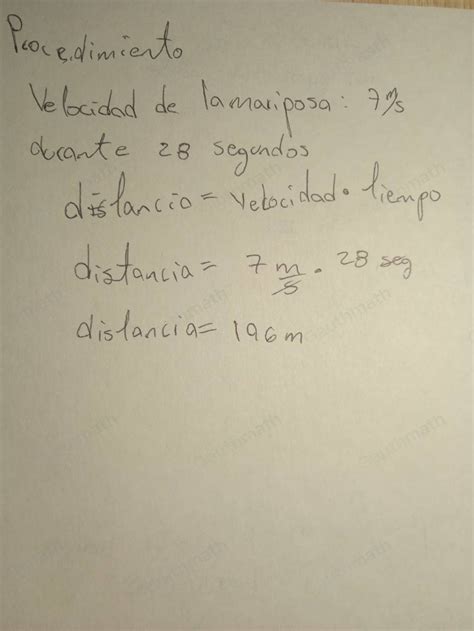 Procedimiento
Velocidad de la mariposa: 7 m/s
durante 28 segundos
distancia = velocidad • tiempo
distancia = 7 m/s • 28 seg
distancia = 196 m